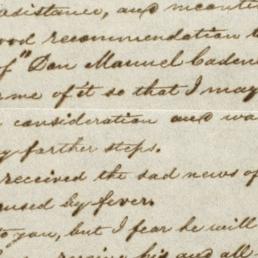 assistance, and
good recommendation
of "Don Manuel Caden
me of it so that I may
consideration and wa
farther steps.
received the sad news of
caused by fever.
to you, but I fear he will
his and all